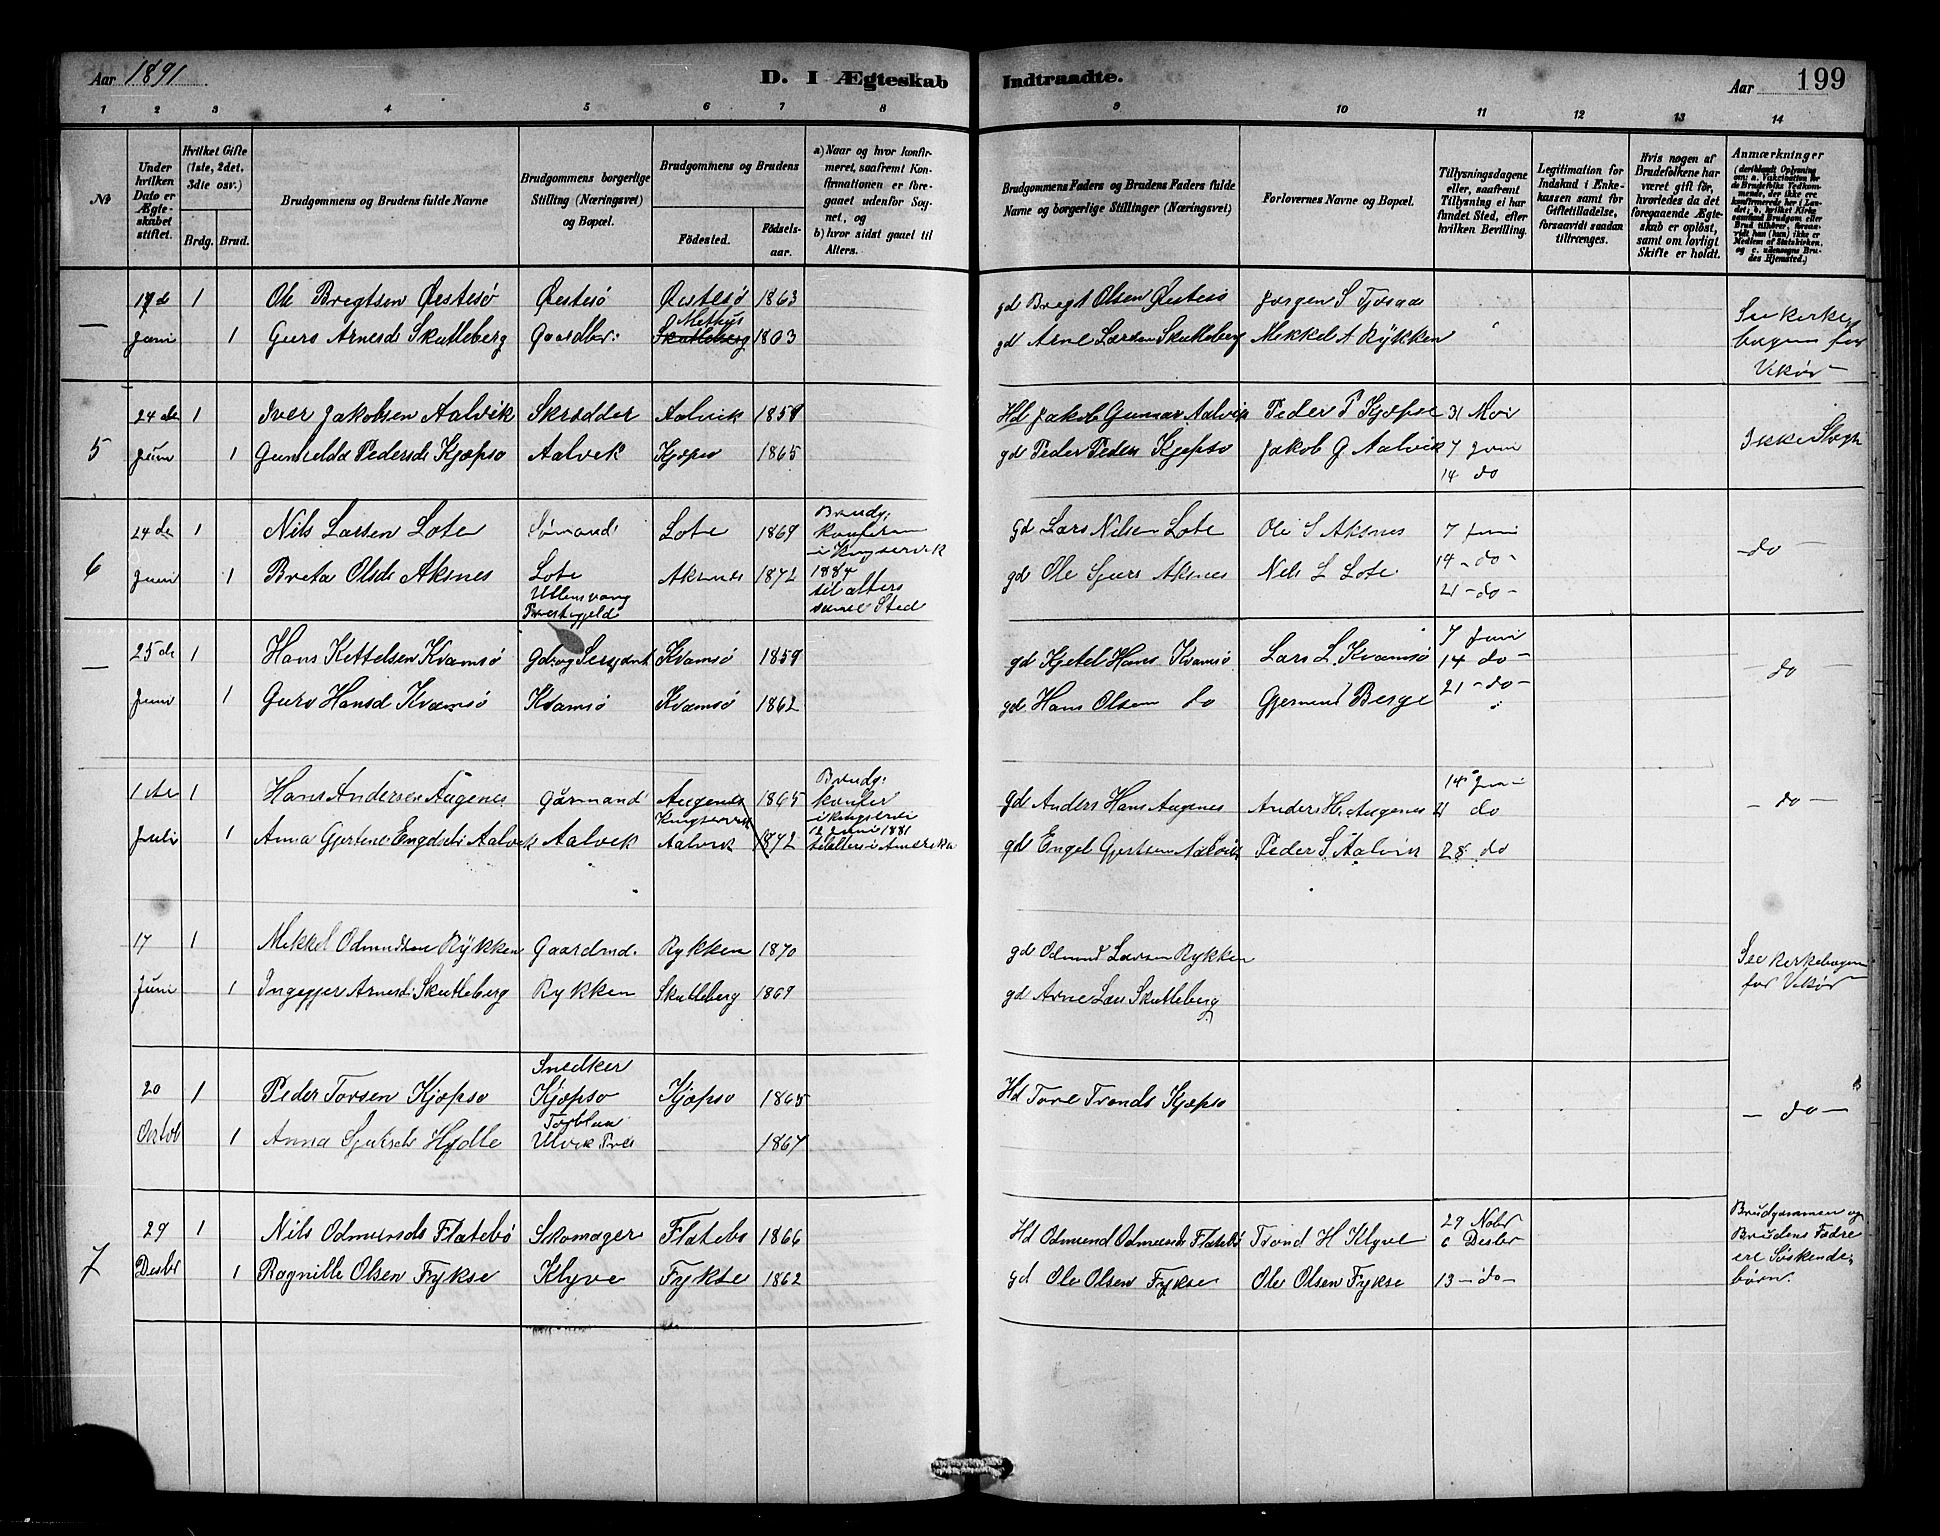 Aar 1891
D. I Ægteskab
Indtraadte.
Aar
199
1 2 3 4 5 6 7 8
9 10 11 12 13 14
No
Under hvilken Dato er Ægteskabet stiftet.
Hvilket Gifte (1ste, 2det, 3die osv.)
Brdg. Brud.
Brudgommens og Brudens fulde Navne
Brudgommens borgerlige Stilling (Næringsvei) og Bopæl.
Brudgommens og Brudens
Födested.
Födselsaar.
a) Naar og hvor konfirmeret, saafremt Konfirmationen er foregaaet udenfor Sognet, og
b) hvor sidst gaaet til Alters.
Brudgommens Faders og Brudens Faders fulde Navne og borgerlige Stillinger (Næringsvei)
Forlovernes Navne og Bopæl.
Tillysningsdagene eller, saafremt Tillysning ei har fundet Sted, efter hvilken Bevilling.
Legitimation for Indskud i Enkekassen samt for Giftetilladelse, forsaavidt saadan tiltrænges.
Hvis nogen af Brudefolkene har været gift för, hvorledes da det foregaaende Ægteskab er oplöst, samt om lovligt Skifte er holdt.
Anmærkninger
—
17de 1 Ole Bregtsen Øestesö Øestesö Øestesö 1863 gd Bregt Olsen Øestesö Jørgen S Tjosaas
Juni 1 Guro Arnesd. Skutleberg Gaardbr: Methus Skutleberg 1863 gd Arne Larsen Skutleberg Mikkel A Rykken
See kirke
bogen for
Vikør
5
24de 1 Iver Jakobsen Aalvik Skrædder Aalvik 1859 Hd Jakob Gunnar Aalvik Peder P Kjepsø 31 Mai
Juni 1 Gunhilda Pedersd. Kjepsø Aalvik Kjepsø 1865 gd Peder Peders Kjepsø Jakob G Aalvik 7 Juni
14 do
Ikke Slægt
6
24de 1 Nils Larsen Lote Sømand Lote 1869 gd Lars Nilsen Lote Ole S Aksnes 7 Juni
Juni 1 Breta Olsd. Aksnes Lote Aksnes 1872 gd Ole Sjurs Aksnes Nils L Lote 14 - do -
Ullensvang
Præstegjeld
Brudg:
konferm
i Kingservik
1884
til alters
samme Sted
21 - do -
- do -
—
25de 1 Hans Kettelsen Kvamsö Gdb og Sergeant Kvamsö 1859 gd Kjetel Hans Kvamsö Lars L. Kvamsö 7 Juni
14 do -
Juni 1 Guro Hansd Kvamsö Kvamsö Kvamsö 1862 gd Hans Olsen do Gjermund Berge 21 - do -
do
1ste 1 Hans Andersen Augenes Gårmand Augenes Kingservik 1865 gd Anders Hans Augenes Anders H. Augenes 14 Juni
21 do
Juli 1 Anna Gjertine Engelsd. Aalvik Aalvik Aalvik 1872 gd Engel Gjertsen Aalvik Peder S. Aalvik 28 do
Brudg:
konfir
i Kingservi
12 Juni 1881
til alters i Amerika
- do -
17 1 Mikkel Odmundsen Rykken Gaardmd. Rykken 1870 gd Odmund Larsen Rykken
Juni 1 Ingeger Arnesd. Skutleberg Rykken Skutleberg 1869 gd Arne Lars Skutleberg
See kirkebogen
for Vikør
20 1 Peder Torsen Kjøpsø Snedker Kjøpsø Kjøpsø 1865 Hd Tore Tronds Kjøpsø
Octob 1 Anna Sjursd. Hydle Ulvik Præs 1867
- do -
7
29 1 Nils Odmunds Flatebö Skomager Flatebö 1866 Hd Odmund Odmunds Flatebö Trond H Klyve 29 Nobr
6 Desbr
Desbr 1 Ragnille Olsen Fykse Klyve Fykse 1862 gd Ole Olsen Fykse Ole Olsen Fykse 13 - do -
Brudgommen og
Brudens Fædre
ere Søskende-
børn.